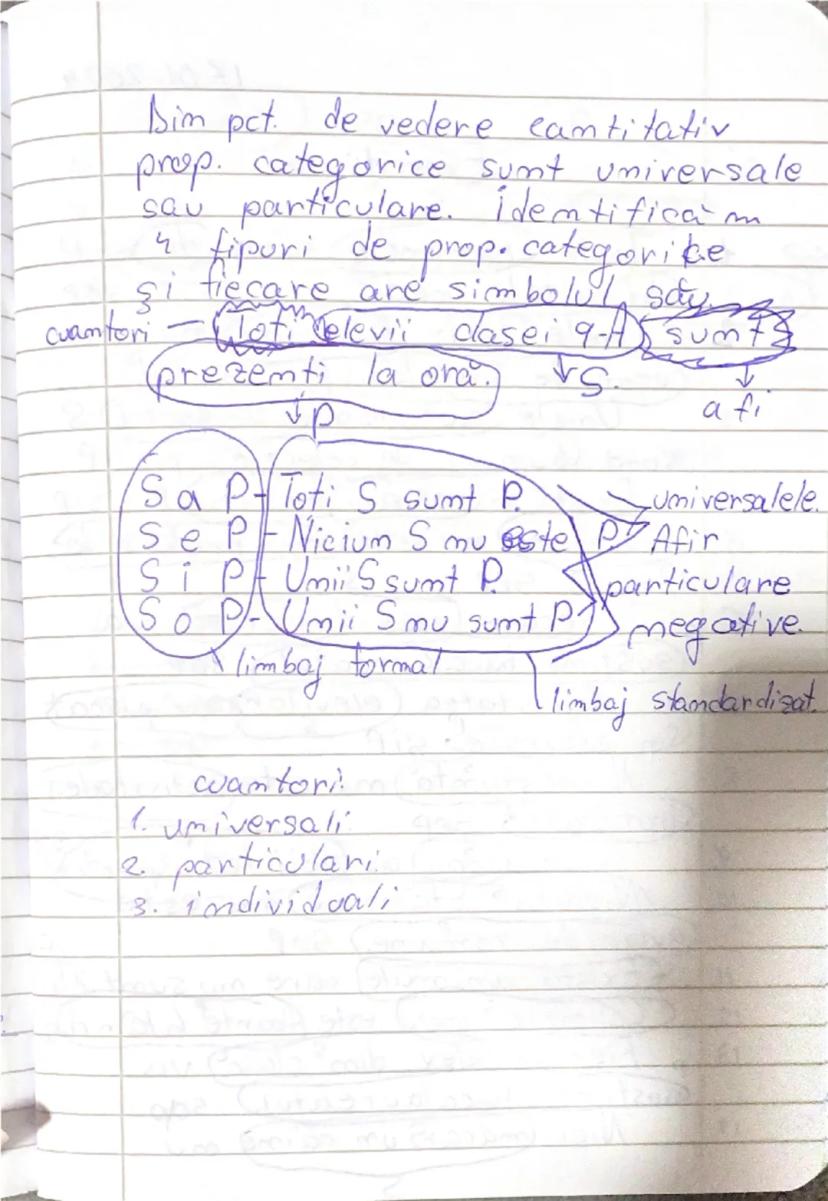 Din pct. de vedere cantitativ
prop. categorice sunt universale
sau particulare. Identificăm
4 tipuri de prop. categorice
și fiecare are simbolul său.
cuantori — Toți elevii clasei 9-A sunt
prezenți la oră. ↓ S. ↓
↓ P a fi
S a P - Toti S sunt P. universalele.
S e P - Niciun S nu este P. Afir
S i P - Unii S sunt P. particulare
S o P - Unii S nu sunt P. negative.
limbaj formal
limbaj standardizat.
cuantori:
1. universali
2. particulari
3. individuali